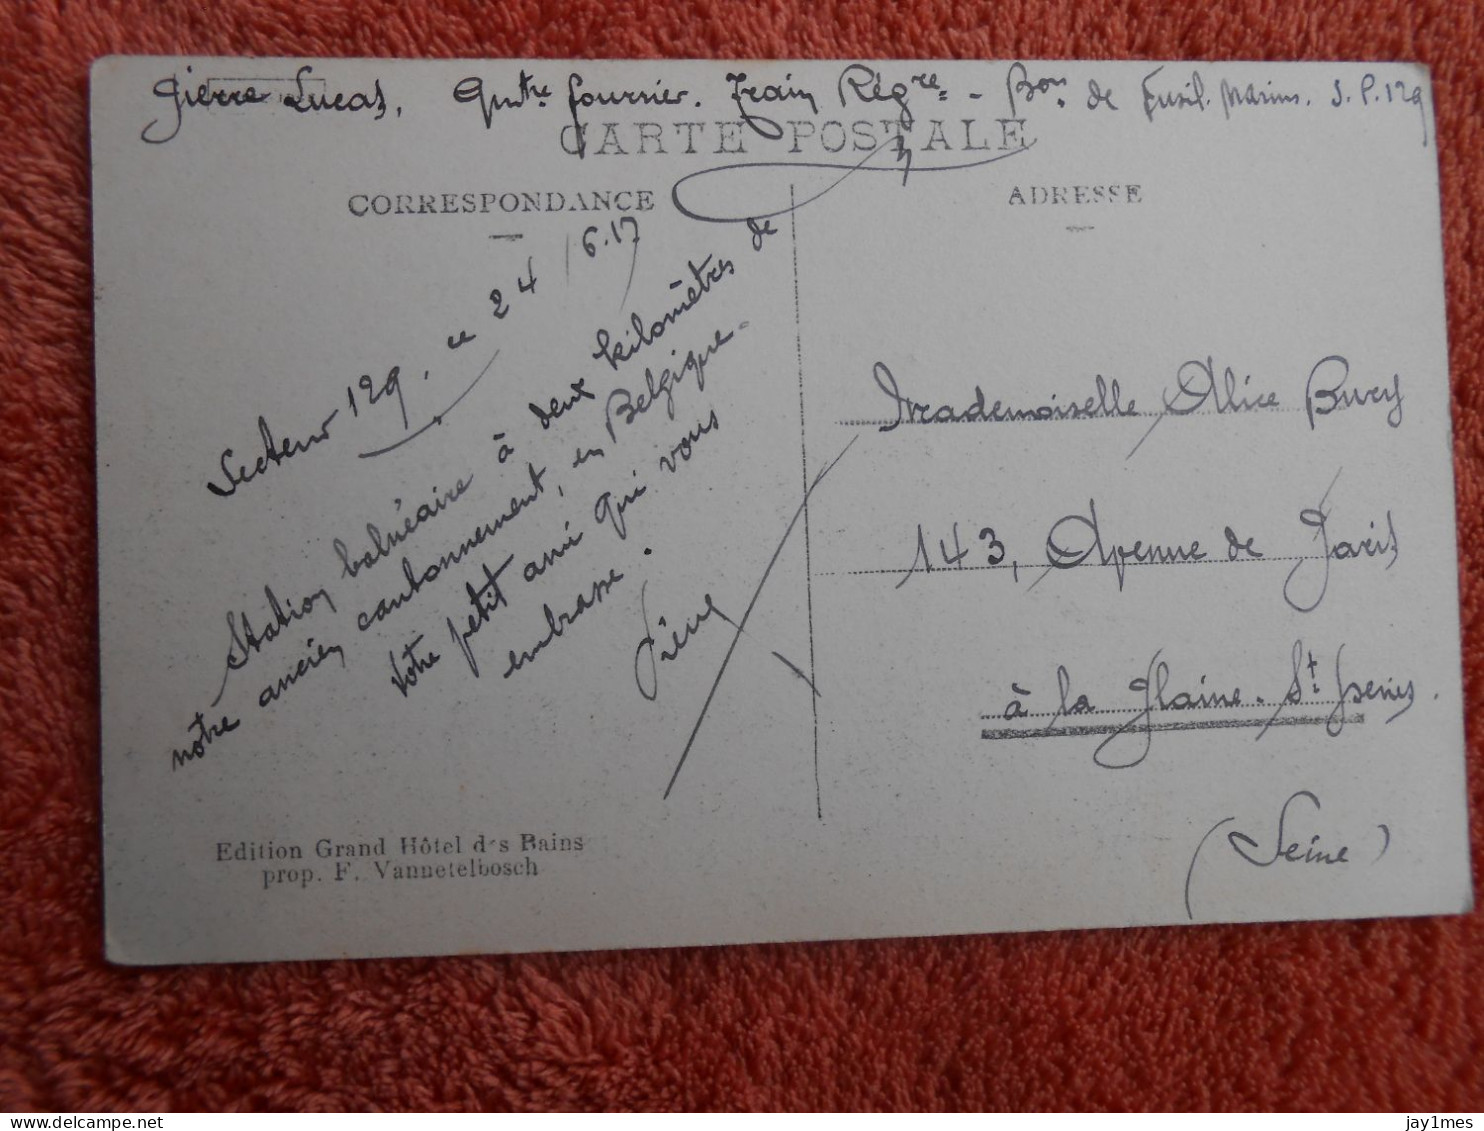 Pierre Lucas, Qutre fourrier. Train Régre = - Bon. de Fusil. Marins. S. P. 129
CARTE POSTALE
CORRESPONDANCE
ADRESSE
Secteur 129. ce 24/6.17
Station balnéaire à deux kilomètres de
notre ancien cantonnement, en Belgique.
Votre petit ami qui vous
embrasse.
Pierre
Mademoiselle Alice Burey
143, Avenue de Paris
à la Plaine. St. Denis.
(Seine)
Edition Grand Hôtel des Bains
prop. F. Vannetelbosch
jay1mes